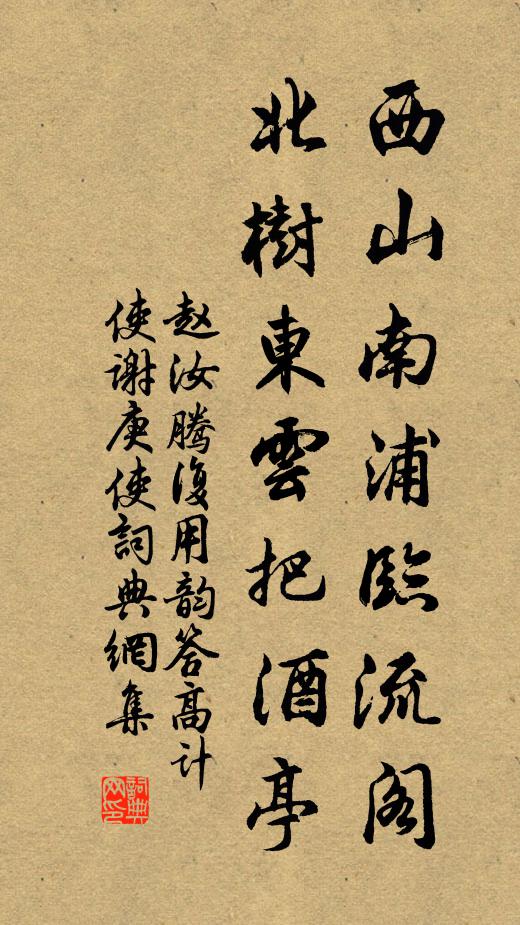 西山南浦臨流阁
北樹東雲把酒亭
赵汝腾復用韵答高计
使谢庚使詞典網集
詞典网印